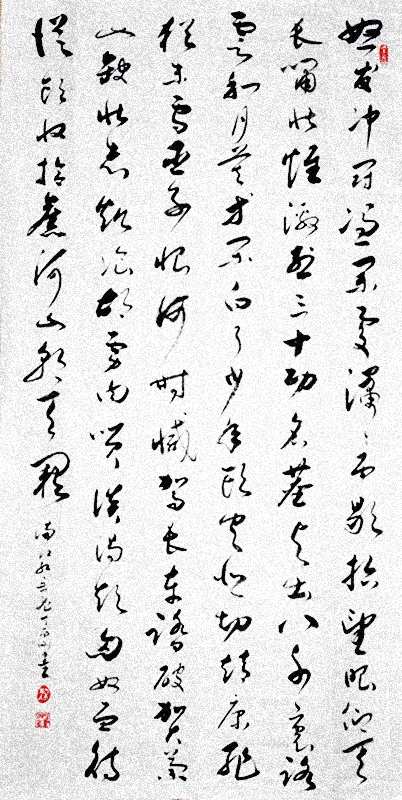 怒髮冲冠憑闌處瀟瀟雨歇抬望眼仰天
長嘯壯懷激烈三十功名塵與土八千里路
雲和月莫等閑白了少年頭空悲切靖康耻
猶未雪臣子恨何時滅駕長車踏破賀蘭
山缺壯志飢餐胡虜肉笑談渴飲匈奴血待
從頭收拾舊河山朝天闕